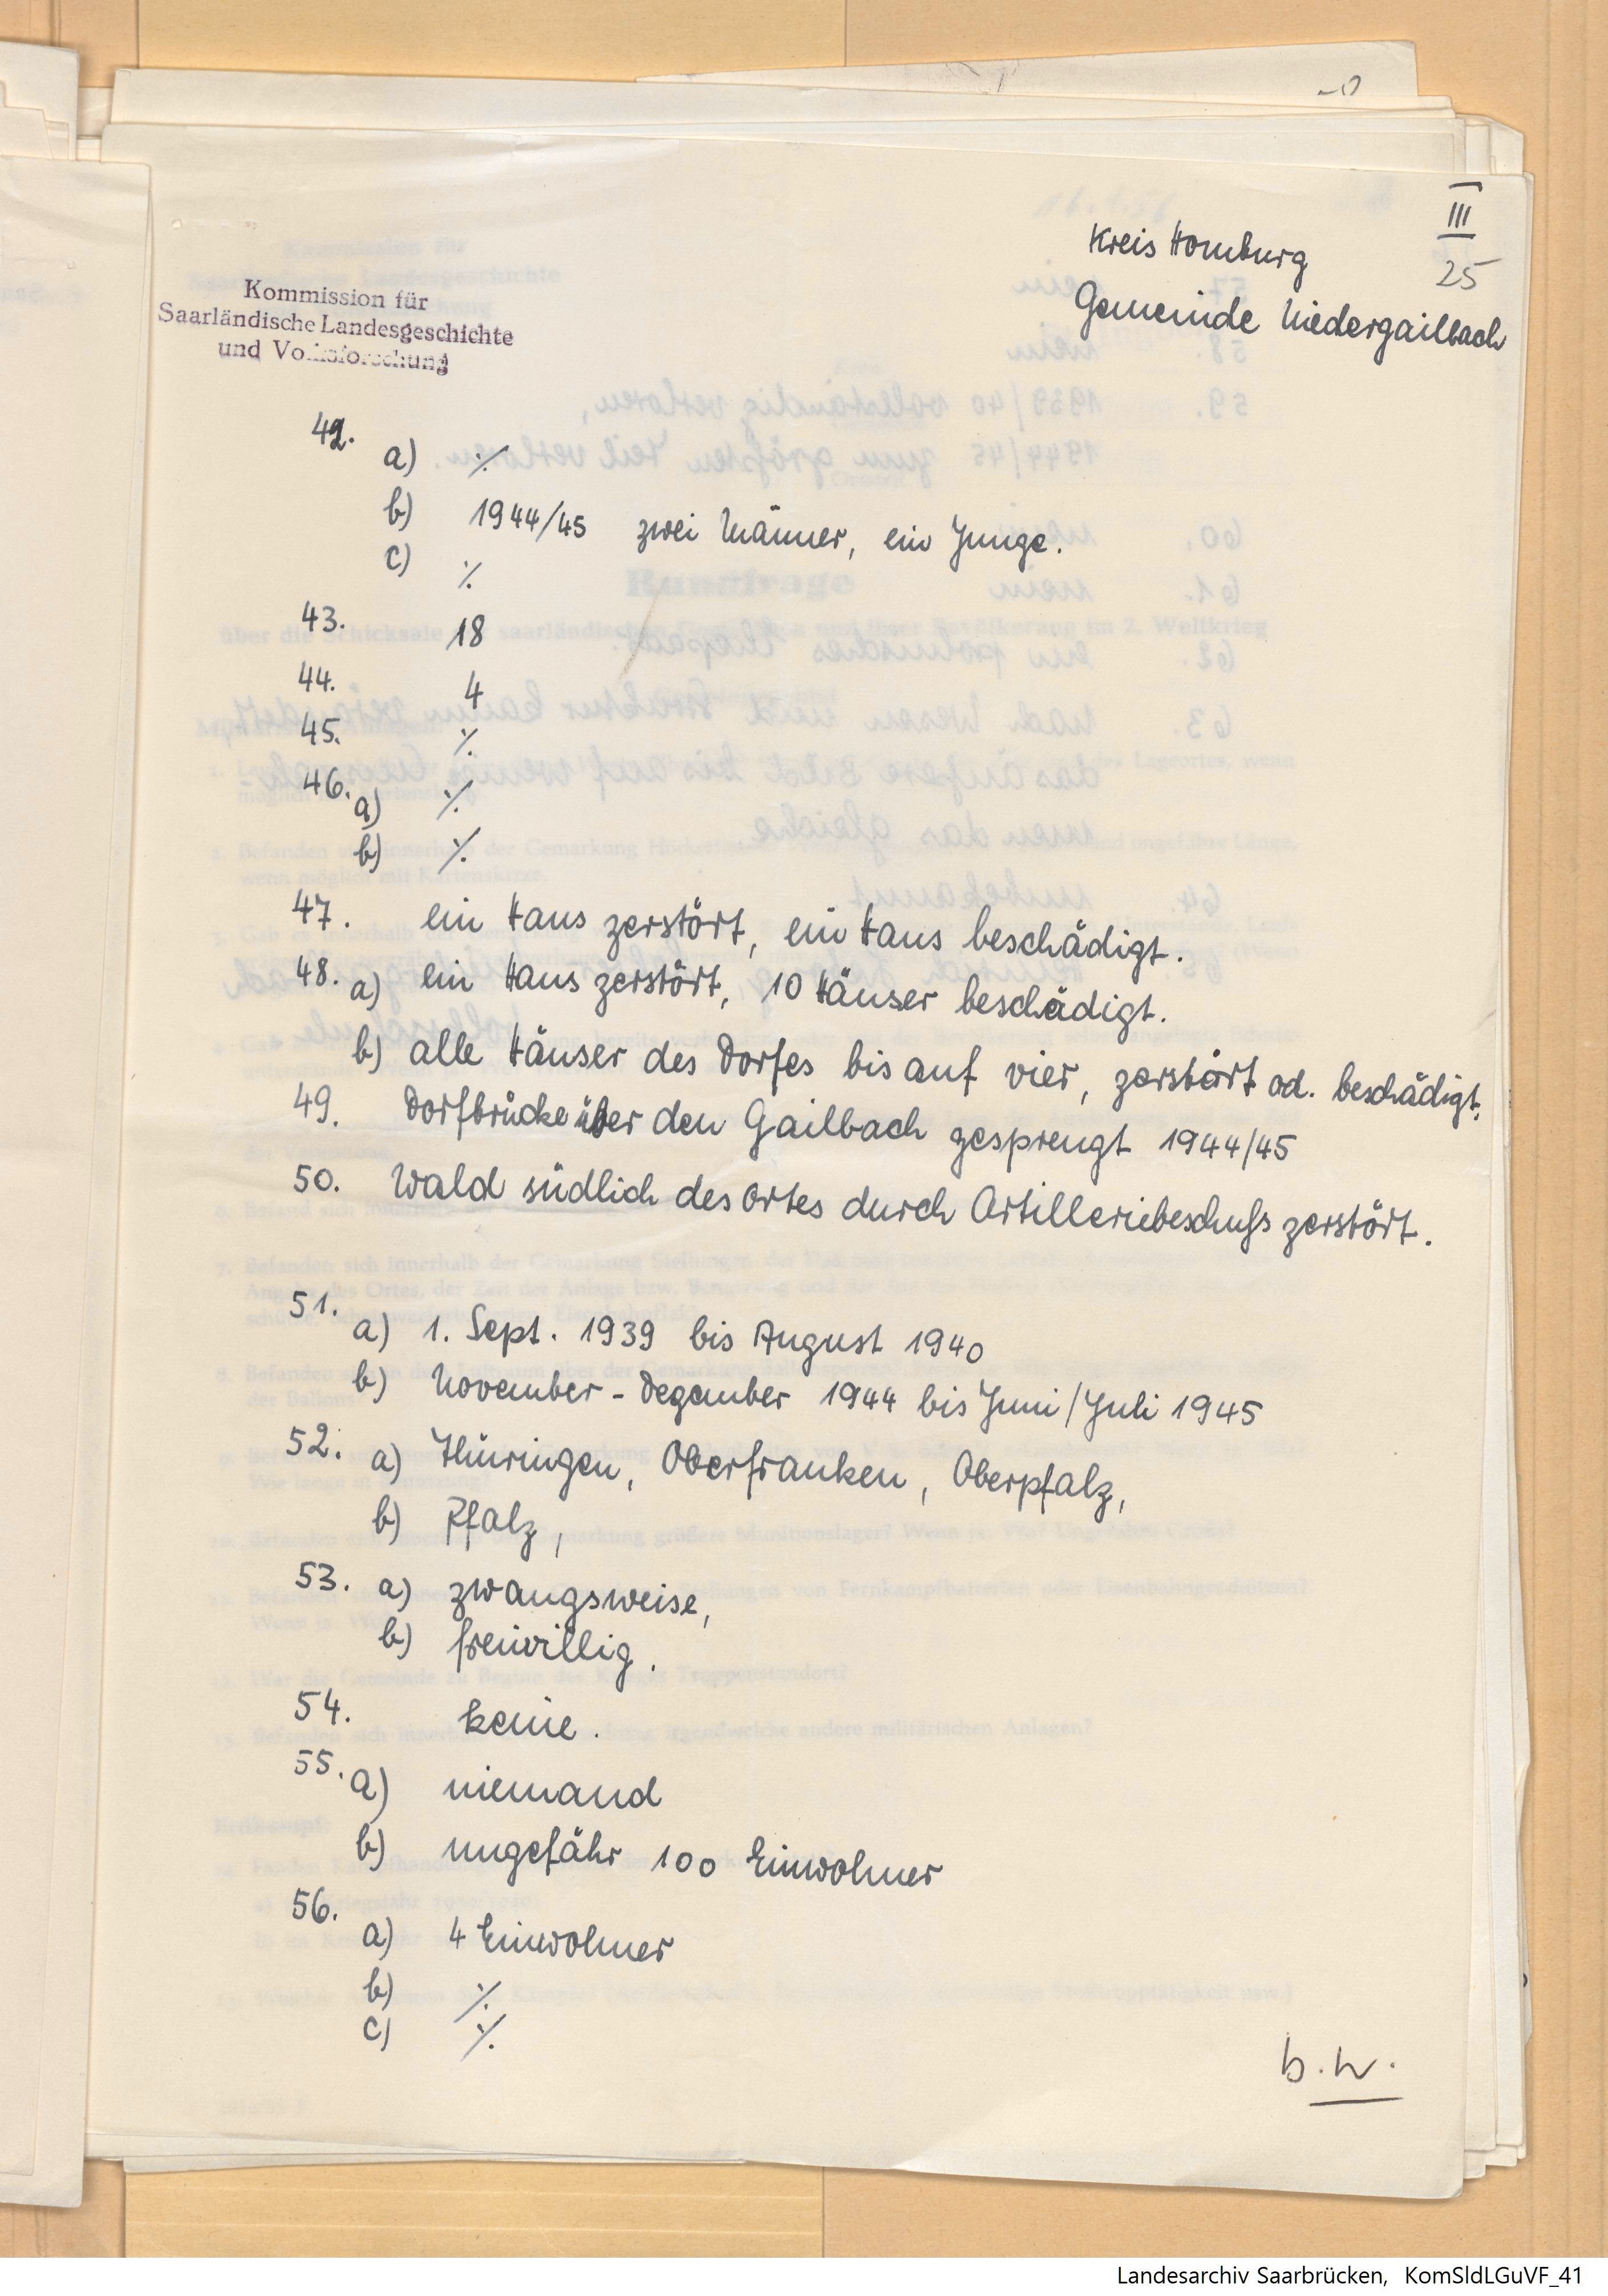 III
25
Kreis Homburg
Gemeinde Niedergailbach
Kommission für
Saarländische Landesgeschichte
und Volksforschung
42.
a) ·/.
b) 1944/45 zwei Männer, ein Junge.
c) ·/.
43. 18
44. 4
45. ·/.
46. a) ·/.
b) ·/.
47. ein Haus zerstört, ein Haus beschädigt.
48. a) ein Haus zerstört, 10 Häuser beschädigt.
b) alle Häuser des Dorfes bis auf vier, zerstört od. beschädigt.
49. Dorfbrücke über den Gailbach gesprengt 1944/45
50. Wald südlich des Ortes durch Artilleriebeschuß zerstört.
51.
a) 1. Sept. 1939 bis August 1940
b) November - Dezember 1944 bis Juni/Juli 1945
52. a) Thüringen, Oberfranken, Oberpfalz,
b) Pfalz,
53. a) zwangsweise,
b) freiwillig.
54. keine.
55. a) niemand
b) ungefähr 100 Einwohner
56.
a) 4 Einwohner
b) ·/.
c) ·/.
b.w.
Landesarchiv Saarbrücken, KomSldLGuVF_41